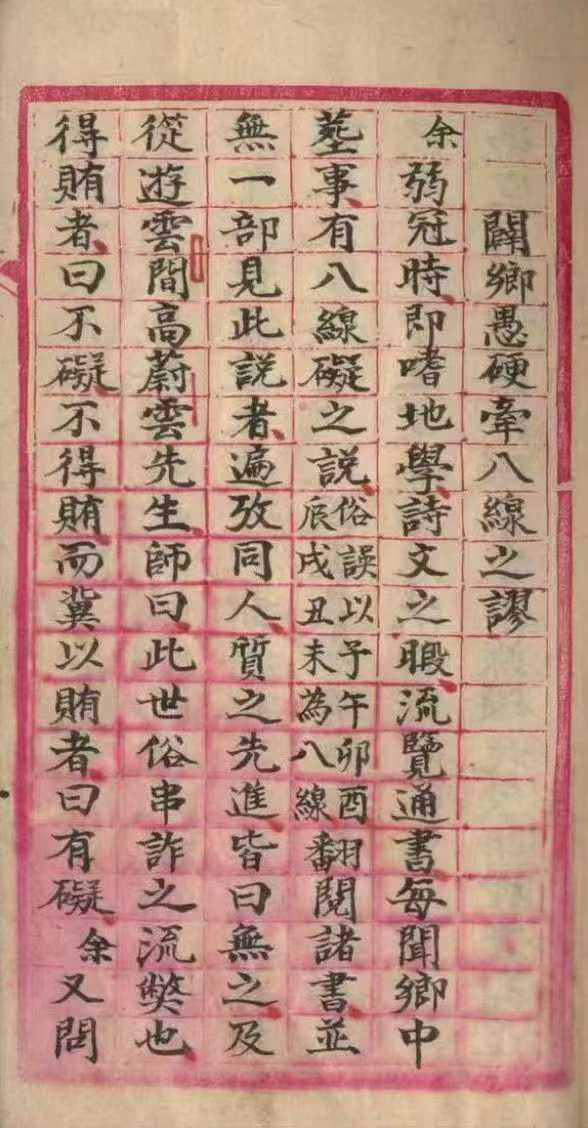 闢鄉愚硬牽八線之謬
余弱冠時即嗜地學詩文之暇流覽通書每聞鄉中
塟事有八線礙之説俗誤以子午卯酉辰戌丑未為八線翻閱諸書並
無一部見此説者遍攷同人質之先進皆曰無之及
從遊雲間高蔚雲先生師曰此世俗串詐之流弊也
得賄者曰不礙不得賄而冀以賄者曰有礙余又問